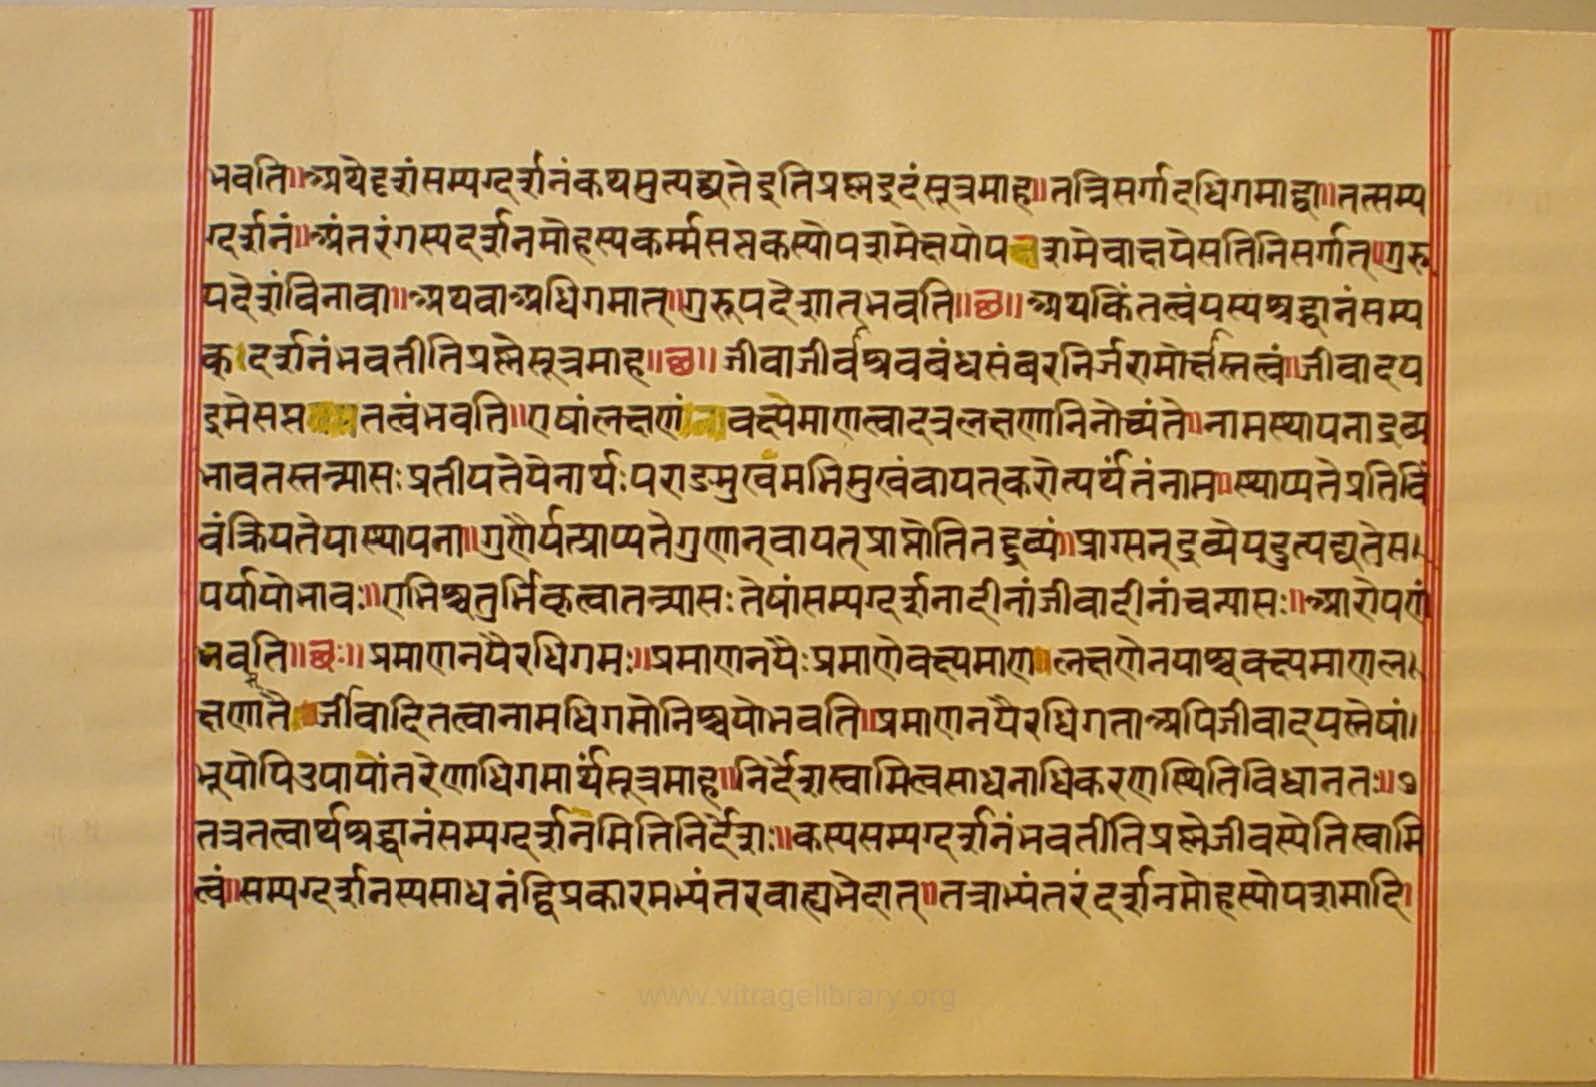 भवति॥अथेदृशंसम्यग्दर्शनंकथमुत्पद्यतेइतिप्रश्नइदंसूत्रमाह॥तन्निसर्गादधिगमाद्वा॥तत्सम्य
ग्दर्शनं॥अंतरंगस्यदर्शनमोहस्यकर्म्मसप्तकस्योपशमेक्षयोपशमेवाक्षयेसतिनिसर्गात्॥गुरू
पदेशंविनावा॥अथवाअधिगमात्॥गुरूपदेशात्भवति॥छ॥अथकिंतत्वंयस्यश्रद्धानंसम्य
क।दर्शनंभवतीतिप्रश्नेसूत्रमाह॥छ॥जीवाजीर्वश्रवबंधसंवरनिर्जरामोर्क्षास्तत्वं॥जीवादय
इमेसप्ततत्वंभवति॥एषांलक्षणंवक्ष्यमाणत्वादत्रलक्षणानिनोच्यंते॥नामस्थापनाद्रव्य
भावतस्तन्न्यासःप्रतीयतेयेनार्थःपराङमुखंमभिमुखंवायत्करोत्यर्थंतंनाम॥स्थाप्यतेप्रतिविं
वंक्रियतेयास्थापना॥गुणैर्यत्प्राप्यतेगुणान्वायत्प्राप्नोतितद्द्रव्यं॥प्राग्सन्द्रव्येयदुत्पद्यतेस।
पर्यायोभावः॥एभिश्चतुर्भिकृत्वातन्न्यासःतेषांसम्यग्दर्शनादीनांजीवादीनांचन्यासः॥आरोपणं
भवति॥छः॥प्रमाणनयैरधिगमः॥प्रमाणनयैःप्रमाणेवक्ष्यमाण॥लक्षणेनयाश्चवक्ष्यमाणल।
क्षणातैजीर्वादितत्वानामधिगमोनिश्चयोभवति॥प्रमाणनयैरधिगताअपिजीवादयस्तेषां।
भूयोपिउपायांतरेणाधिगमार्थंसूत्रमाह॥निर्देशस्वामित्वसाधनाधिकरणस्थितिविधानतः॥७
तत्रतत्वार्थश्रद्धानंसम्यग्दर्शनमितिनिर्देशः॥कस्यसम्यग्दर्शनंभवतीतिप्रश्नेजीवस्येतिस्वामि
त्वं॥सम्यग्दर्शनस्यसाधनंद्विप्रकारमभ्यंतरवाह्यभेदात्॥तत्राभ्यंतरंदर्शनमोहस्योपशमादि।
www.vitragelibrary.org